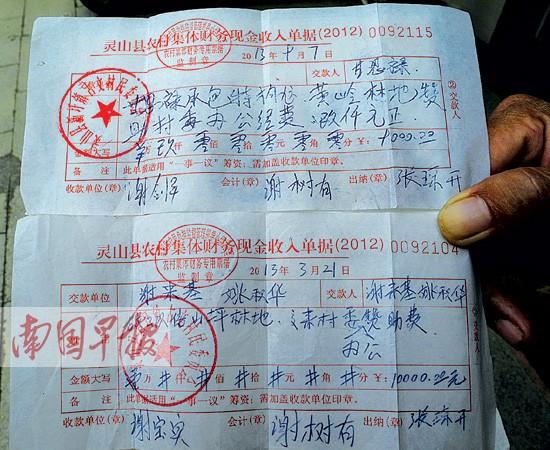 灵山县农村集体财务现金收入单据(2012) 0092115
农村集体财务专用票据
监制章
2013年 月7日
交款人 甘
承包 黄岭林地 赞
助村委办公经费 玖仟元正
金额大写 万玖仟零佰零拾零元零角零分 ¥:9000.00
备 注 此单据适用"一事一议"筹资;需加盖收款单位印章。
收款单位(章) 会计(章) 谢树有 出纳(章) 张 开
②交款人
灵山县农村集体财务现金收入单据(2012) 0092104
农村集体财务专用票据
监制章
2013年3月21日
交款单位 谢来基 姚 华 交款人 谢来基 姚 华
林地 交来村委赞助费
办公
金额大写 万 仟 佰 拾 元 角 分 ¥:10000.00元
备 注 此单据适用"一事一议"筹资;需加盖收款单位印章。
收款单位(章) 谢宝 会计(章) 谢树有 出纳(章) 张 开
南国早报